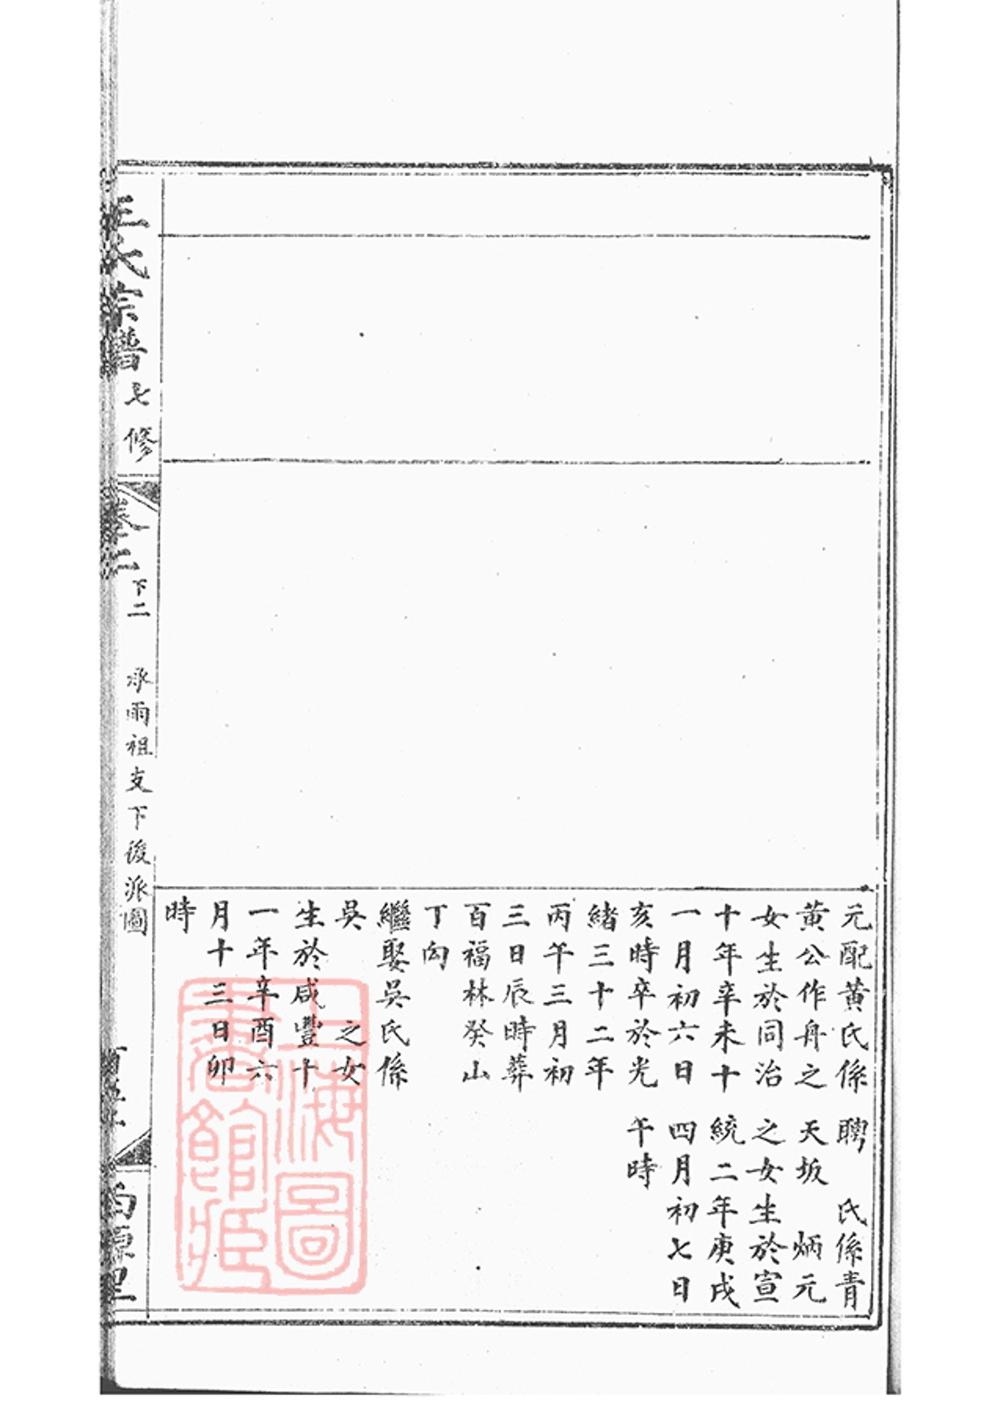 元配黃氏係
黃公作舟之
女生於同治
十年辛未十
一月初六日
亥時卒於光
緒三十二年
丙午三月初
三日辰時葬
百福林癸山
丁向
繼娶吳氏係
吳　之女
生於咸豐十
一年辛酉六
月十三日卯
時
聘　氏係青
天坂　炳元
之女生於宣
統二年庚戌
四月初七日
午時
氏宗譜七修
卷二下二
承雨祖支下後派圖
上海圖
書館藏